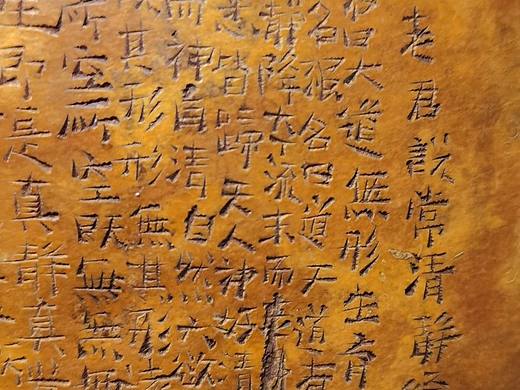 老君說常清靜
曰大道無形生育
名強名曰道夫道者
靜降夲流末而
悉皆歸夫人神好清
而神自清自然六欲
其形形無其形
所空所空既無無無
生即是真靜真常